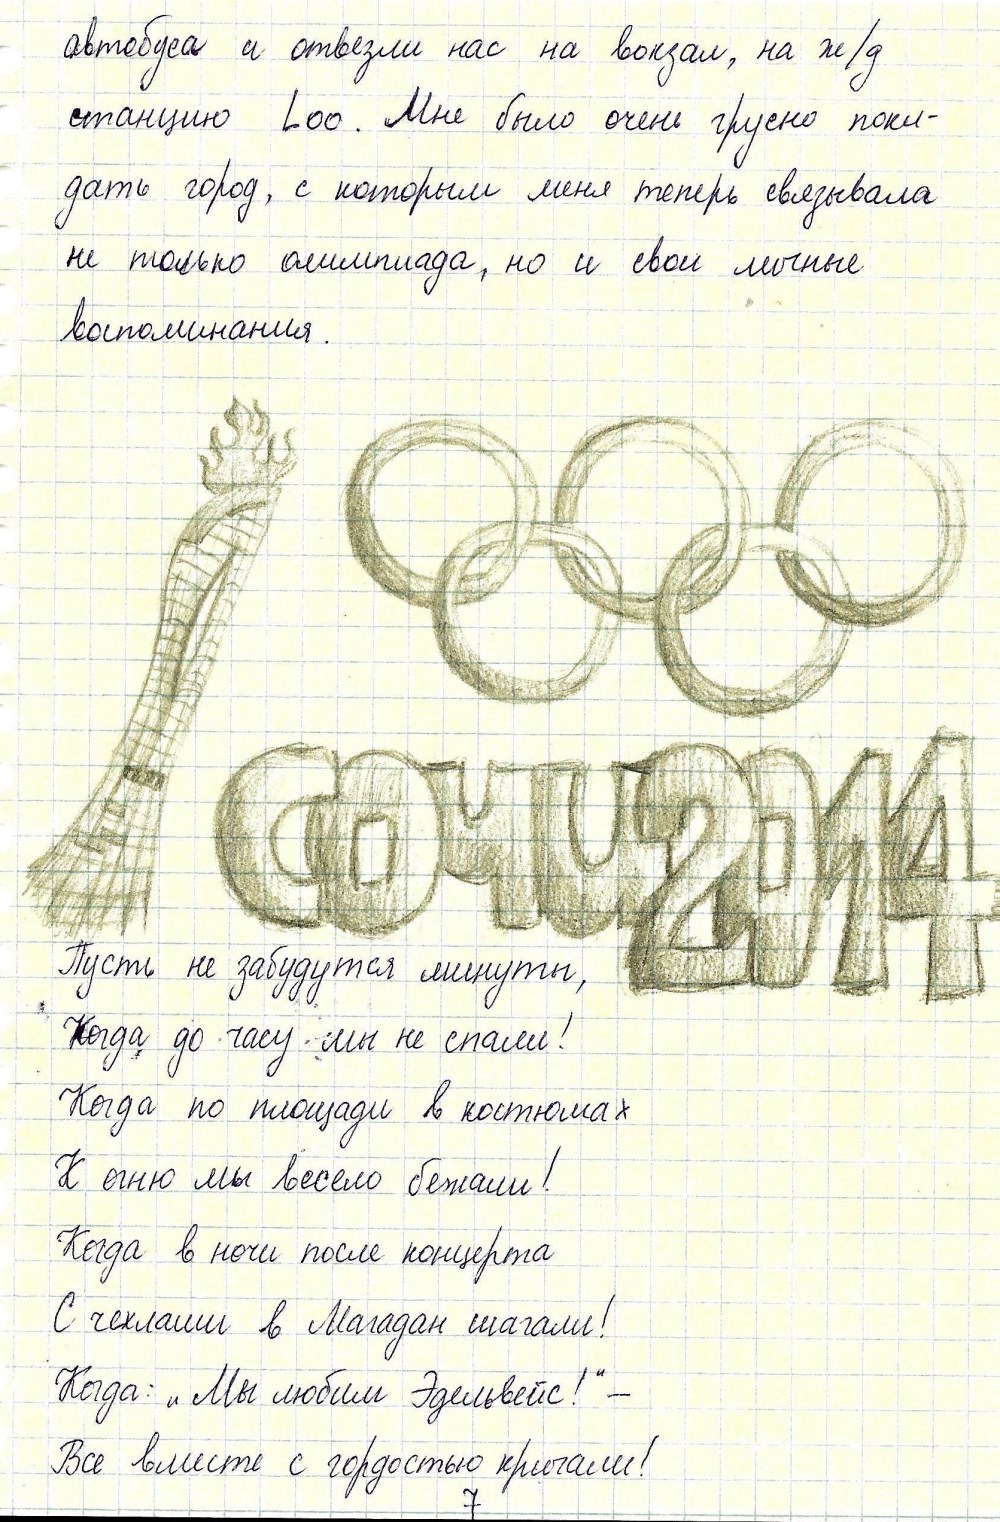 автобуса и отвезли нас на вокзал, на ж/д
станцию Loo. Мне было очень грусно поки-
дать город, с которым меня теперь связывала
не только олимпиада, но и свои личные
воспоминания.
СОЧИ 2014
Пусть не забудутся минуты,
Когда до часу мы не спали!
Когда по площади в костюмах
К огню мы весело бежали!
Когда в ночи после концерта
С чехлами в Магадан шагали!
Когда: „Мы любим Эдельвейс!“ –
Все вместе с гордостью кричали!
7